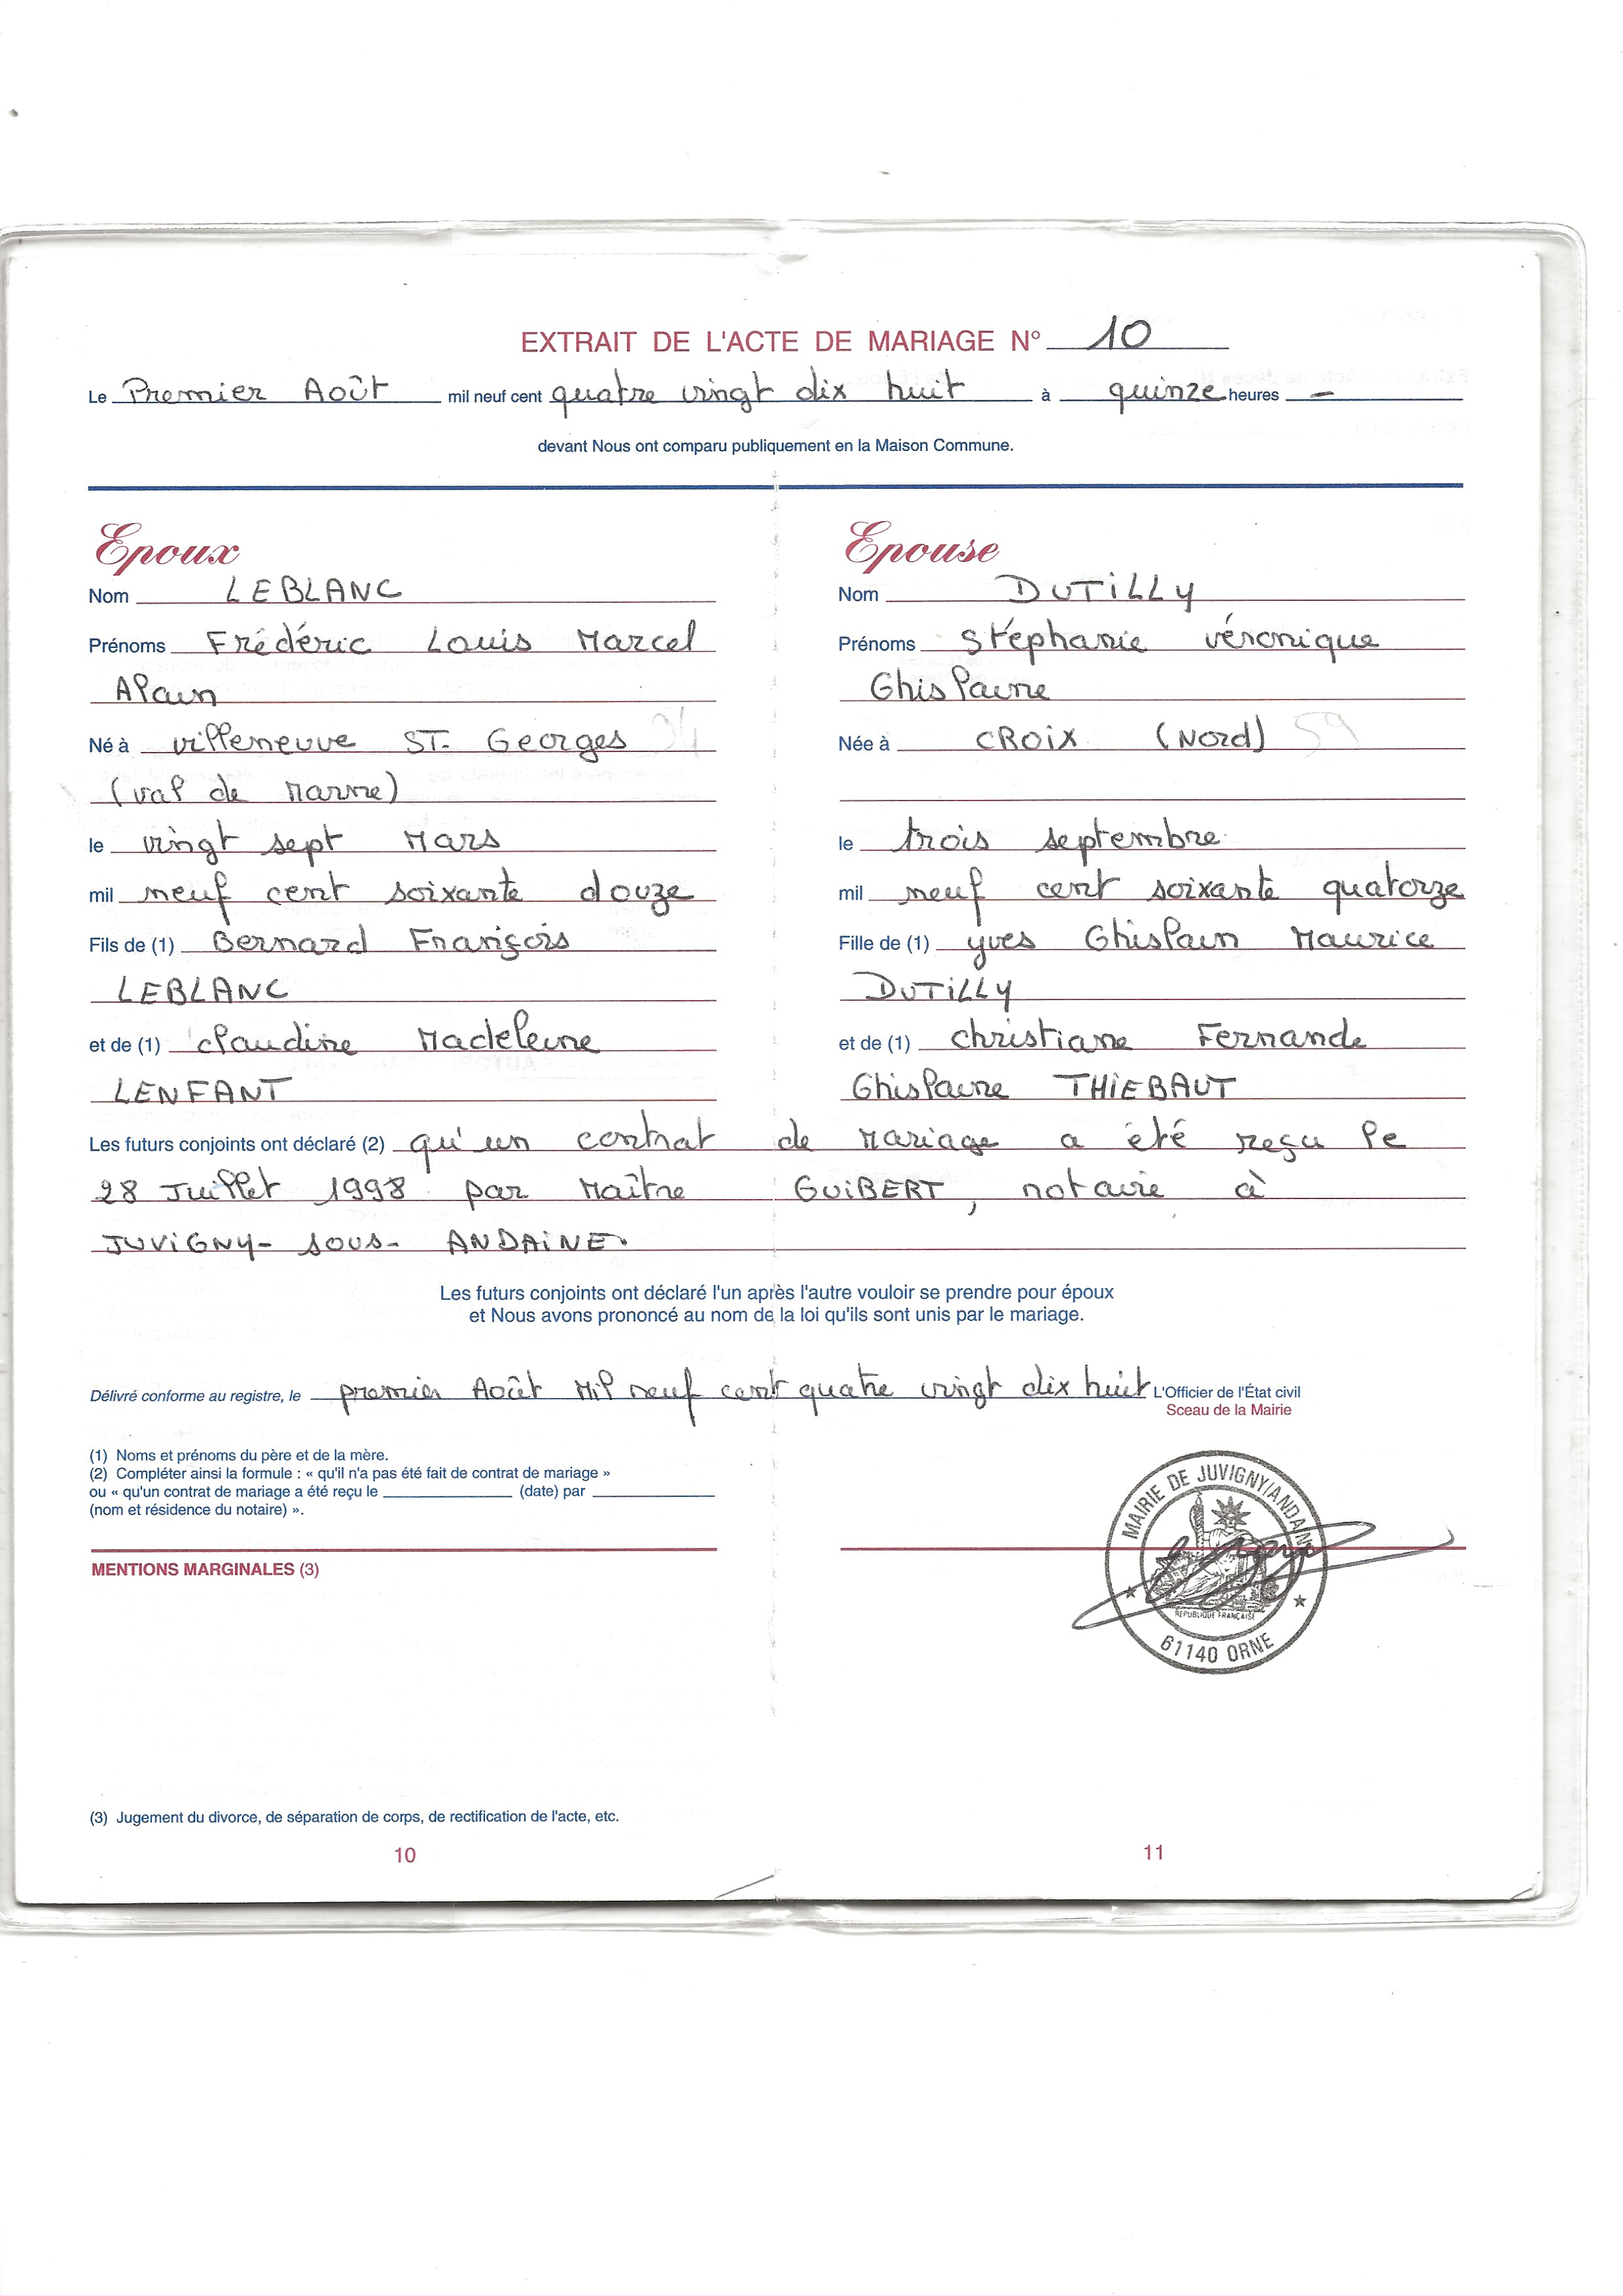 EXTRAIT DE L'ACTE DE MARIAGE N° 10
Le Premier Août mil neuf cent quatre vingt dix huit à quinze heures –
devant Nous ont comparu publiquement en la Maison Commune.
Epoux
Nom LEBLANC
Prénoms Frédéric Louis Marcel
Alain
Né à villeneuve ST. Georges 94
(val de Marne)
le vingt sept Mars
mil neuf cent soixante douze
Fils de (1) Bernard François
LEBLANC
et de (1) claudine Madeleine
LENFANT
Epouse
Nom DUTILLY
Prénoms Stéphanie véronique
Ghislaine
Née à CROIX (Nord) 59
le trois septembre
mil neuf cent soixante quatorze
Fille de (1) yves Ghislain Maurice
DUTILLY
et de (1) christiane Fernande
Ghislaine THIEBAUT
Les futurs conjoints ont déclaré (2) qu'un contrat de Mariage a été reçu le
28 Juillet 1998 par Maître GUIBERT, notaire à
JUVIGNY- sous- ANDAINE.
Les futurs conjoints ont déclaré l'un après l'autre vouloir se prendre pour époux
et Nous avons prononcé au nom de la loi qu'ils sont unis par le mariage.
Délivré conforme au registre, le premier Août Mil neuf cent quatre vingt dix huit L'Officier de l'État civil
Sceau de la Mairie
(1) Noms et prénoms du père et de la mère.
(2) Compléter ainsi la formule : « qu'il n'a pas été fait de contrat de mariage »
ou « qu'un contrat de mariage a été reçu le (date) par
(nom et résidence du notaire) ».
MAIRIE DE JUVIGNY/ANDAINE
RÉPUBLIQUE FRANÇAISE
61140 ORNE
MENTIONS MARGINALES (3)
(3) Jugement du divorce, de séparation de corps, de rectification de l'acte, etc.
10
11